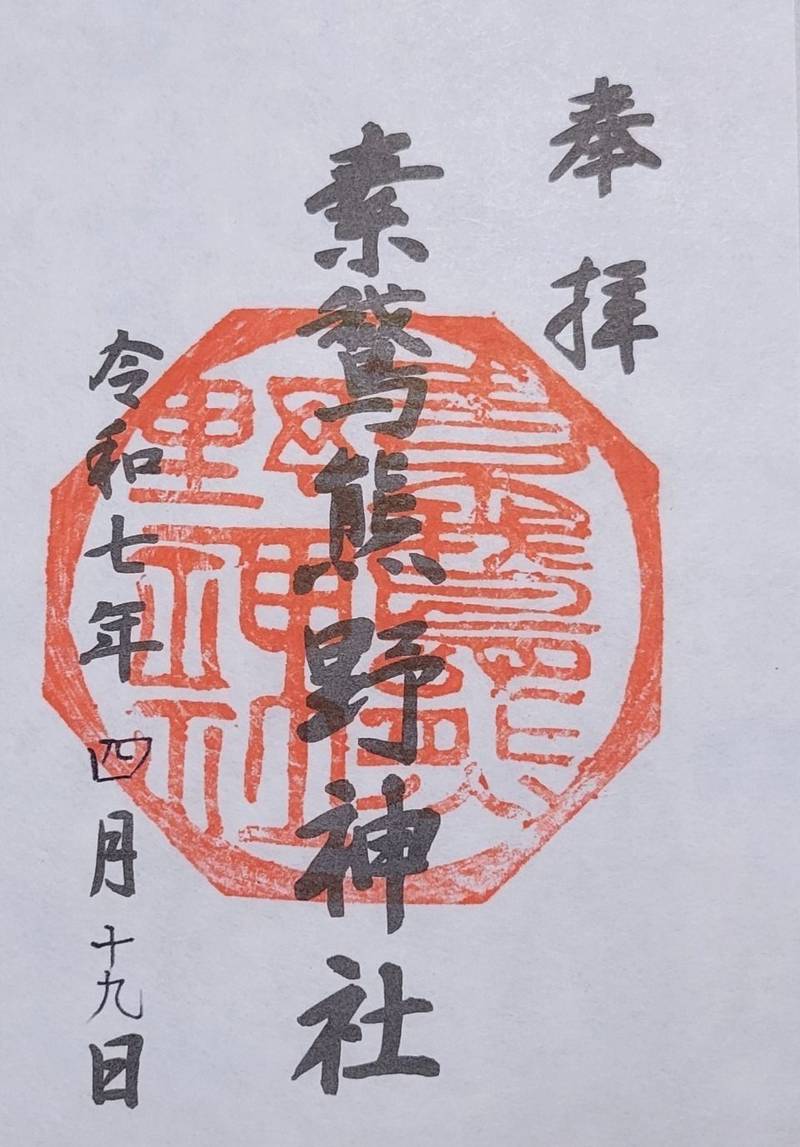 奉拝
素鵞熊野神社
令和七年四月十九日
素鵞熊
野神社